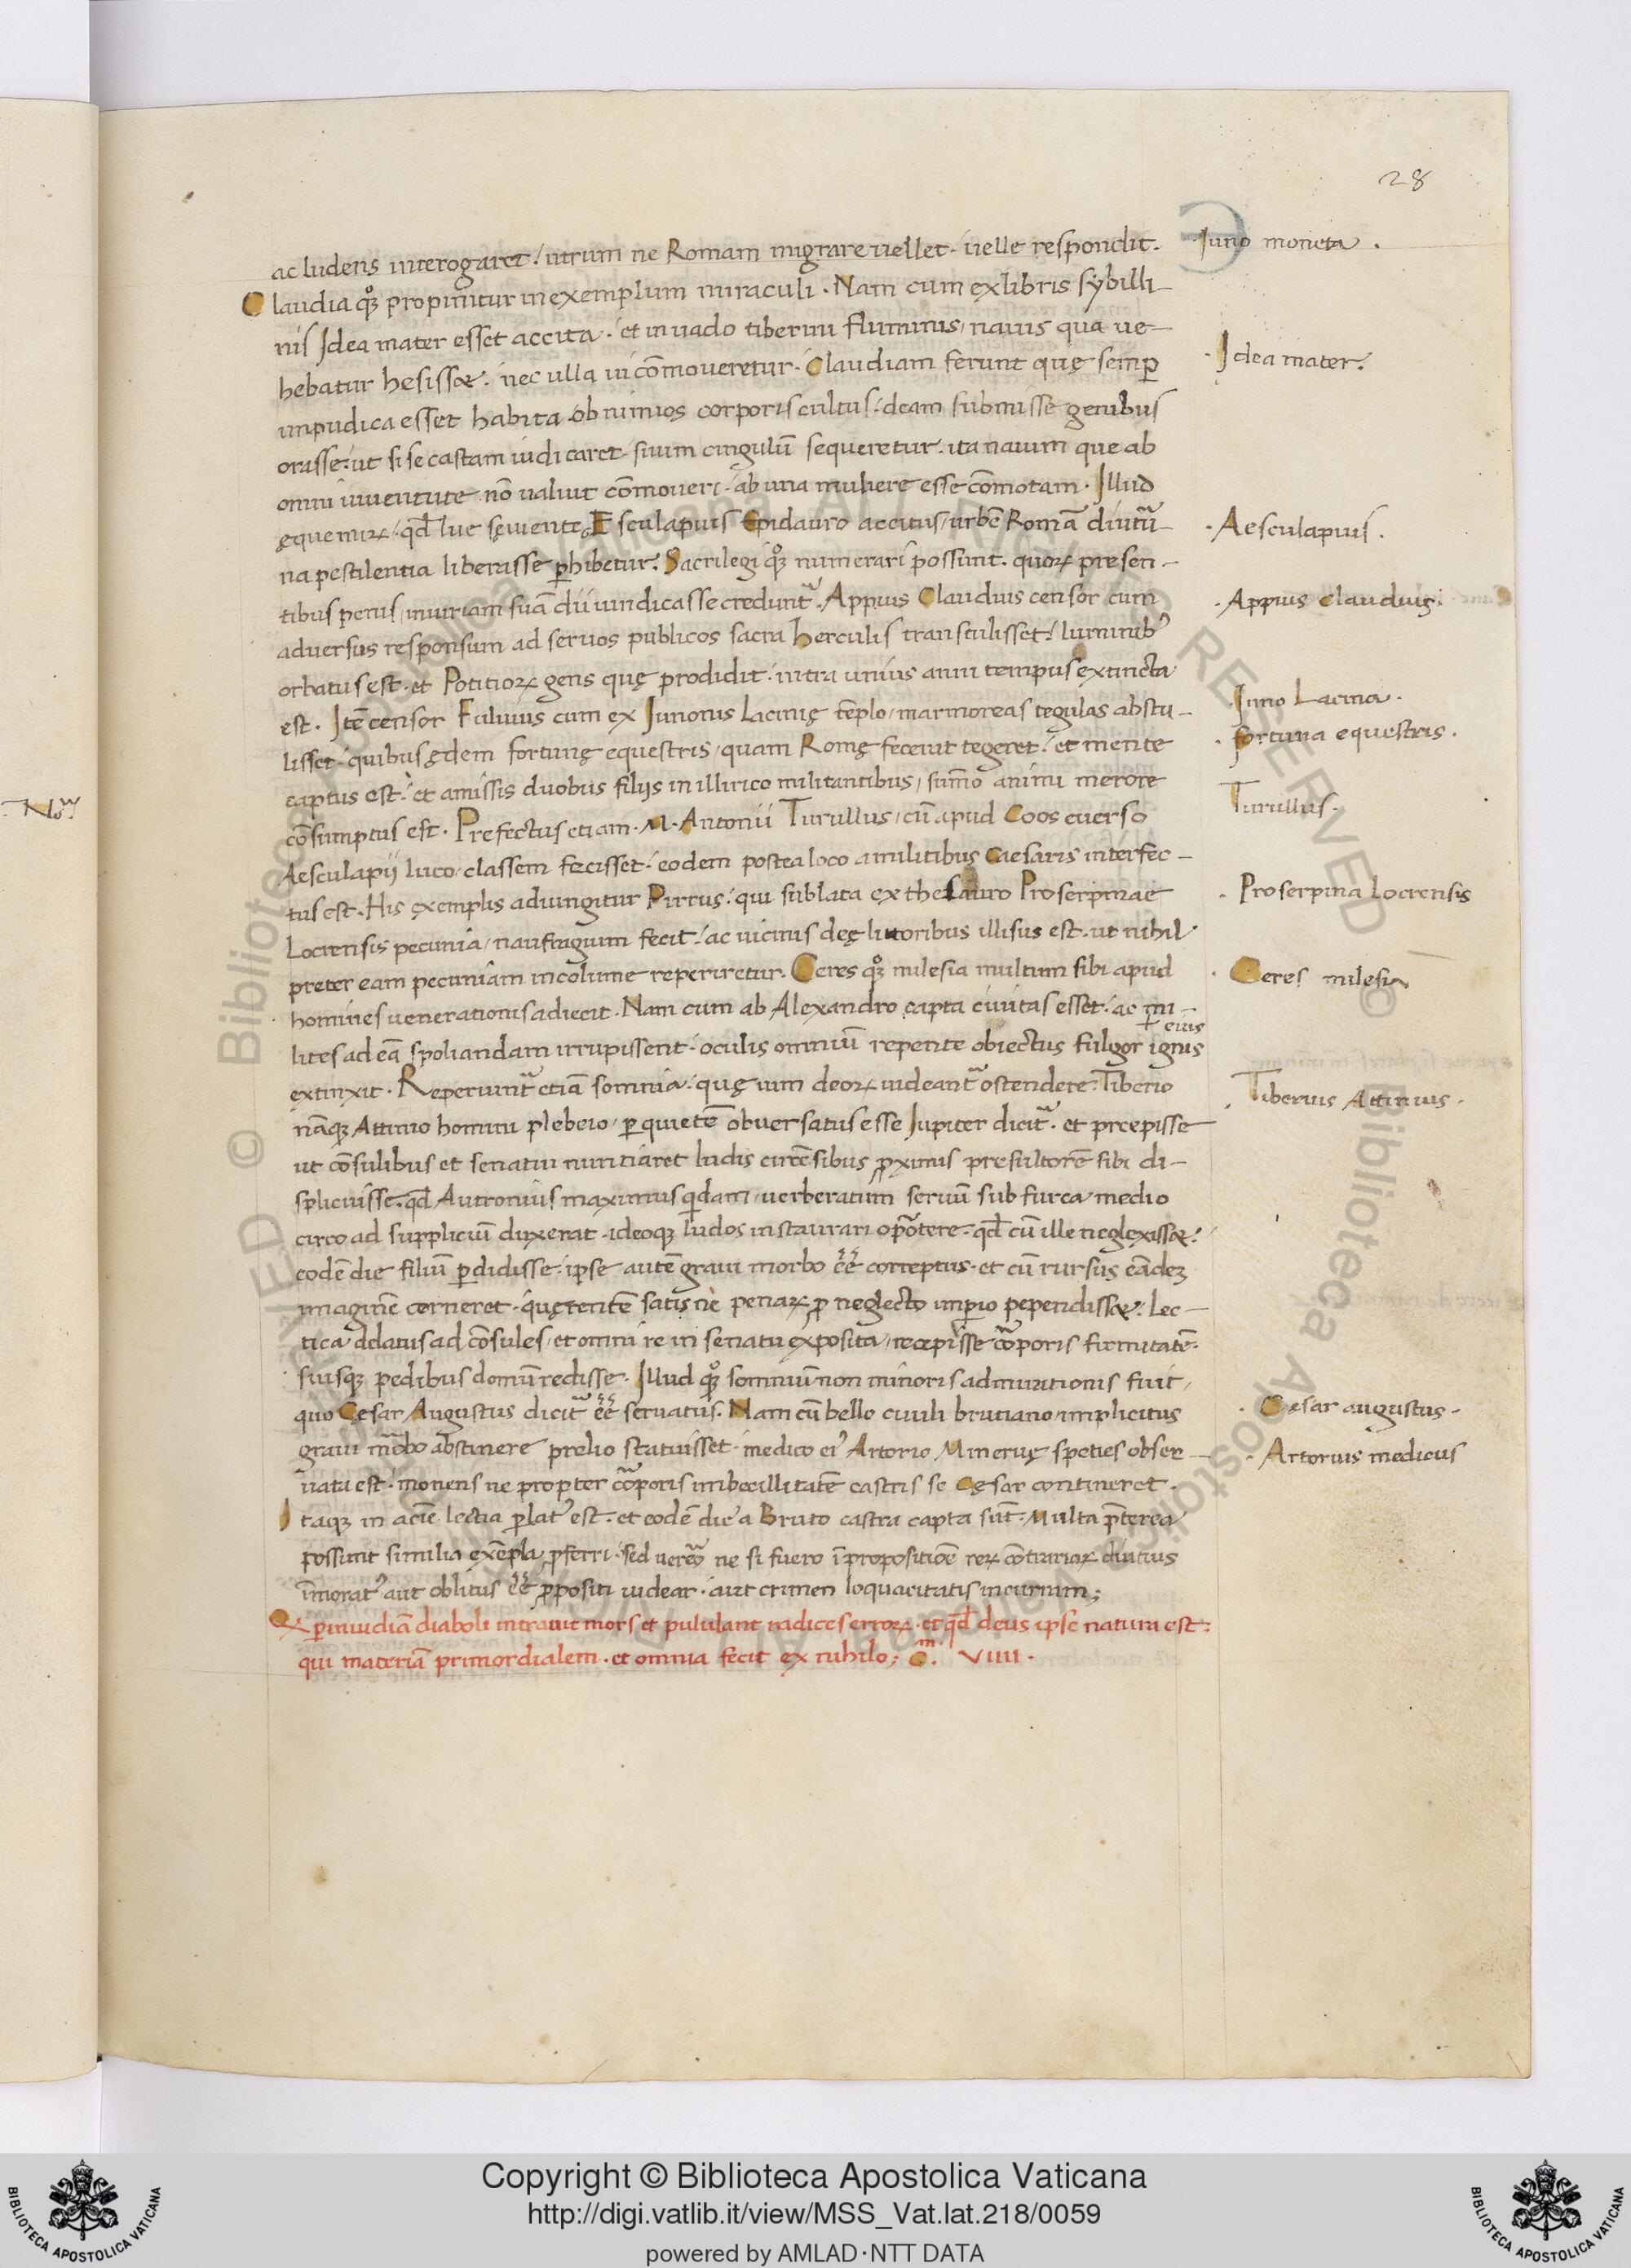 28
ac ludens interogaret / utrum ne Romam migrare vellet. velle respondit.
Juno moneta.
Claudia qꝫ proponitur in exemplum miraculi. Nam cum ex libris sybilli-
nis Idea mater esset accita. et in vado tiberini fluminis / navis qua ve-
hebatur hesisset. nec ulla vi cōmoveretur. Claudiam ferunt quę semꝑ
Idea mater.
impudica esset habita ob nimios corporis cultus. deam submisse genibus
orasse. ut si se castam iudicaret. suum cingulū sequeretur. ita navim que ab
omni iuventute nō valuit cōmoveri. ab una muliere esse cōmotam. Illud
ęque miꝝ. qđ lue sęviente Esculapius Epidauro accitus / urbē Romā diutū-
Aesculapius.
na pestilentia liberasse ꝑhibetur. Sacrilegi qꝫ numerari possunt. quoꝝ presen-
tibus penis / iniuriam suā dii vindicasse credunt̃. Appius Claudius censor cum
Appius Claudius.
adversus responsum ad servos publicos sacra herculis transtulisset. luminibꝰ
orbatus est. et Potitioꝝ gens quę prodidit. intra unius anni tempus extincta
est. Itē censor Fulvius cum ex Junonis Lacinię tēplo / marmoreas tegulas abstu-
Juno Lacina.
lisset. quibus ędem fortunę equestris / quam Romę fecerat tegeret. et mente
fortuna equestris.
captus est. et amissis duobus filijs in illirico militantibus / sūmo animi merore
cōsumptus est. Prefectus etiam. M. Antonii Turullus / cū apud Coos everso
Turullus.
Aesculapij luco / classem fecisset. eodem postea loco a militibus Caesaris interfec-
tus est. His exemplis adiungitur Pirrus. qui sublata ex thesauro Proserpinae
Proserpina Locrensis
Locrensis pecunia / naufragium fecit. ac vicinis deę littoribus illisus est. ut nihil
preter eam pecuniam incolume reperiretur. Ceres qꝫ milesia multum sibi apud
Ceres milesia
homines venerationis adiecit. Nam cum ab Alexandro capta civitas esset. ac mi-
eius
lites ad eā spoliandam irrupissent. oculis omniū repente obiectus fulgor ignis
extinxit. Reperiunt̃ etiā somnia. quę vim deoꝝ videant̃ ostendere. Tiberio
Tiberius Attinius.
nāqꝫ Attinio homini plebeio / ꝑ quietē obversatus esse Jupiter dicit̃. et precepisse
ut cōsulibus et senatui nuntiaret ludis circēsibus ꝓximis presultorē sibi di-
splicuisse. qđ Autronius maximus qͥdam / verberatum servū sub furca / medio
circo ad suppliciū duxerat. ideoqꝫ ludos instaurari oportere. qđ cū ille neglexisset.
eodē die filiū ꝑdidisse. ipse autē gravi morbo eē correptus. et cū rursus eādeꝫ
imaginē cerneret. quęrentē satis ne penaꝝ ꝓ neglecto imꝑio pependisset. Lec-
tica delatus ad cōsules / et omni re in senatu exposita / recepisse corporis firmitatē.
suisqꝫ pedibus domū redisse. Illud qꝫ somniū non minoris admirationis fuit /
quo Cęsar Augustus dicit̃ eē servatus. Nam cū bello civili brutiano / implicitus
Cęsar augustus.
gravi morbo abstinere prelio statuisset. medico eiꝰ Artorio Minervę speties obser-
Artorius medicus
vata est. monens ne propter corporis imbecillitatē castris se Cęsar contineret.
Itaqꝫ in aciē lectica ꝑlatꝰ est. et eodē die a Bruto castra capta sūt. Multa p̄terea
possunt similia exēpla ꝓferri. sed vereor ne si fuero ī propositiōe reꝝ cōtrariaꝝ diutius
īmoratꝰ aut oblitus eē ꝓpositi videar. aut crimen loquacitatis incurram;
Qͣ ꝑ invidiā diaboli intravit mors et pululant radices erroꝝ. et qđ deus ipse natura est:
qui materiā primordialem. et omnia fecit ex nihilo; C.ᵐ VIIII.
Noᵃ.
© Biblioteca Apostolica Vaticana ALL RIGHTS RESERVED
Copyright © Biblioteca Apostolica Vaticana
http://digi.vatlib.it/view/MSS_Vat.lat.218/0059
powered by AMLAD·NTT DATA
BIBLIOTECA APOSTOLICA VATICANA
BIBLIOTECA APOSTOLICA VATICANA